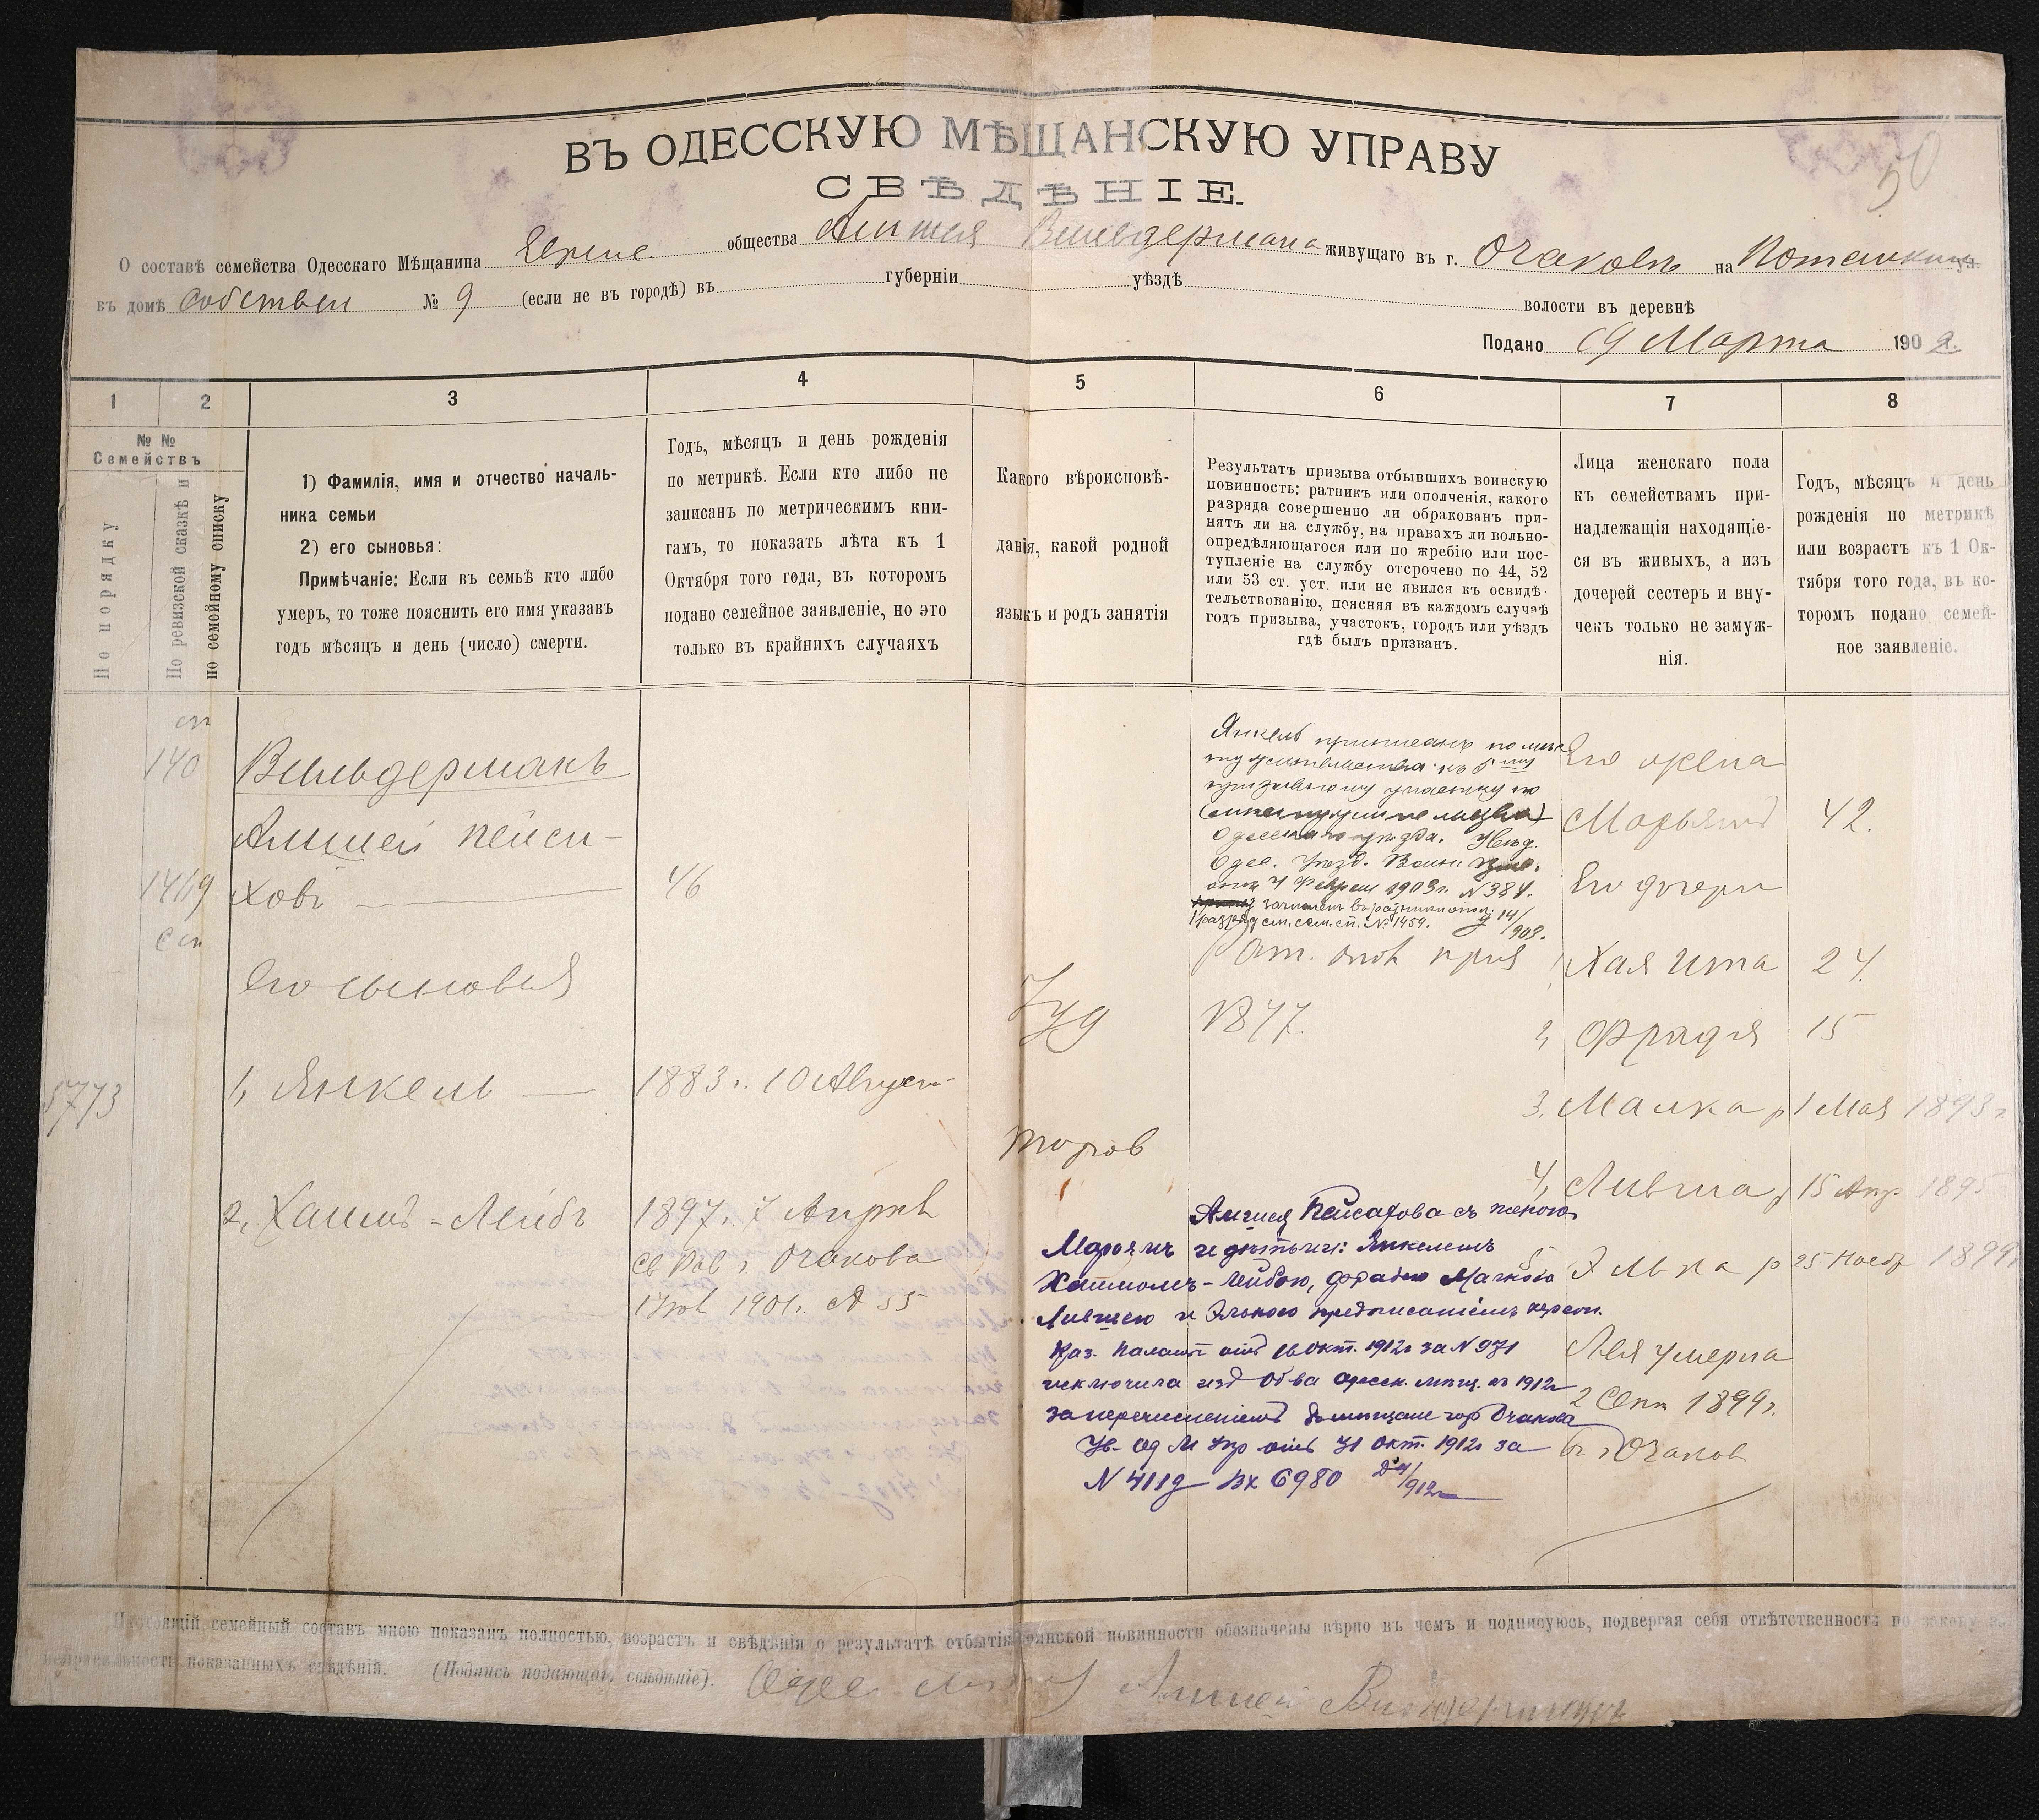 50
ВЪ ОДЕССКУЮ МѢЩАНСКУЮ УПРАВУ
СВѢДѢНІЕ.
О составѣ семейства Одесскаго Мѣщанина Еврейс. общества Амшея Вильдермана живущаго въ г. Очаковѣ на Потемкинск
въ домѣ собствен № 9 (если не въ городѣ) въ губерніи уѣздѣ волости въ деревнѣ
Подано 19 Марта 1902.
1 2 3 4 5 6 7 8
№ №
Семействъ
По порядку
По ревизской сказкѣ и
по семейному списку
1) Фамилія, имя и отчество началь-
ника семьи
2) его сыновья:
Примѣчаніе: Если въ семьѣ кто либо
умеръ, то тоже пояснить его имя указавъ
годъ мѣсяцъ и день (число) смерти.
Годъ, мѣсяцъ и день рожденія
по метрикѣ. Если кто либо не
записанъ по метрическимъ кни-
гамъ, то показать лѣта къ 1
Октября того года, въ которомъ
подано семейное заявленіе, но это
только въ крайнихъ случаяхъ
Какого вѣроисповѣ-
данія, какой родной
языкъ и родъ занятія
Результатъ призыва отбывшихъ воинскую
повинность: ратникъ или ополченія, какого
разряда совершенно ли обракованъ при-
нятъ ли на службу, на правахъ ли вольно-
опредѣляющагося или по жребію или пос-
тупленіе на службу отсрочено по 44, 52
или 53 ст. уст. или не явился къ освидѣ-
тельствованію, поясняя въ каждомъ случаѣ
годъ призыва, участокъ, городъ или уѣздъ
гдѣ былъ призванъ.
Лица женскаго пола
къ семействамъ при-
надлежащія находящіе-
ся въ живыхъ, а изъ
дочерей сестеръ и вну-
чекъ только не замуж-
нія.
Годъ, мѣсяцъ и день
рожденія по метрикѣ
или возрастъ къ 1 Ок-
тября того года, въ ко-
торомъ подано семей-
ное заявленіе.
сп
140
1419
с сп
5773
Вильдерманъ
Амшей Пейси-
ховъ 46
Его сыновья
1, Янкель 1883 г. 10 Август
2, Хаимъ-Лейбъ 1897 г. 7 Апрѣл
Св Рав г. Очакова
1901 г. № 55
Іуд
торгов
Янкель приписанъ по мѣс
ту жительства къ 5 му
призывному участку по
Одесскаго уѣзда. Увѣд.
Одес. Уѣзд. Воин
отъ 4 Феврал 1903 г. N 384.
зачисленъ въ ратники опол.
1 разряд см. сем. сп. № 1459.
1877.
Его жена
Марьямъ 42.
Его дочери
1, Хая Ита 24.
2, Фрадя 15
3, Малка р 1 Мая 1893 г
4, Лившa р 15 Апр 1895
5 Элька р 25 Нояб 1899 г.
Лея умерла
2 Сент 1899 г.
въ г Очаков
Амшея Пейсахова съ женою
Марьямъ и дѣтьми: Янкелемъ
Хаимомъ-Лейбою, Фрадею Малкою
Лившею и Элькою предписаніемъ Херсон.
Каз. Палаты отъ 16 Окт. 1912 г за N 971
исключила изъ Об-ва Одесск. мѣщ. въ 1912 г
за перечисленіемъ въ мѣщане гор Очакова
Ув- Од М Упр отъ 31 Окт. 1912 г за
N 4119 Вх 6980
Настоящій семейный составъ мною показанъ полностью, возрастъ и свѣдѣнія о результатѣ отбытія воинской повинности обозначены вѣрно въ чемъ и подписуюсь, подвергая себя отвѣтственности по закону за
неправильность показанныхъ свѣдѣній. (Подпись подающаго свѣдѣніе). Одес Амшей Вильдерманъ